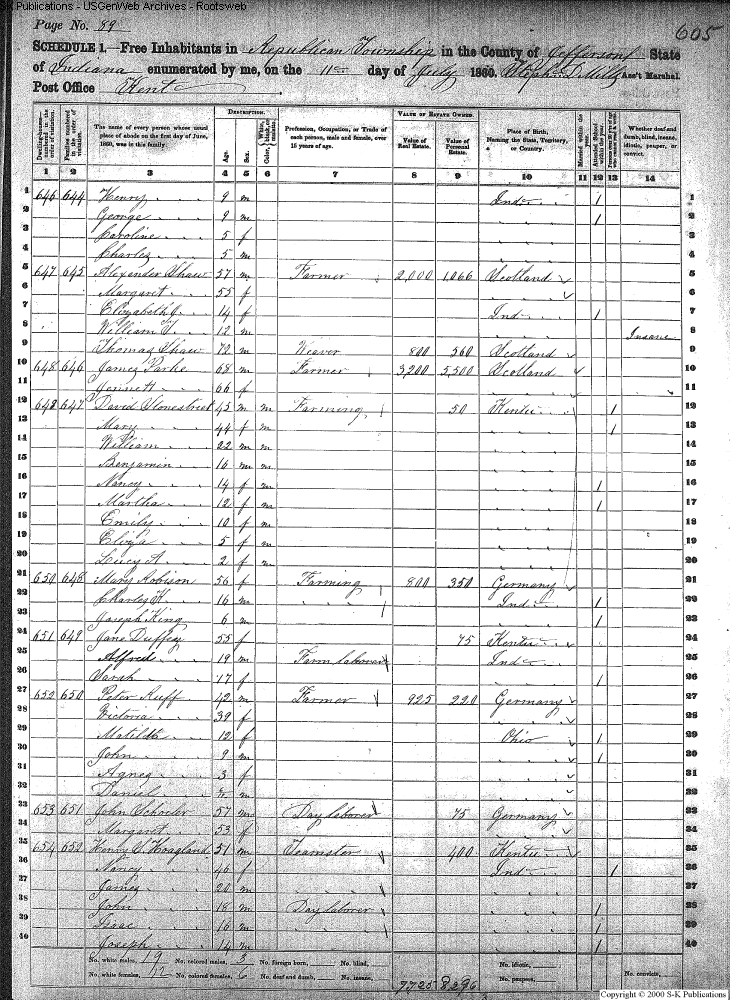 S-K Publications - USGenWeb Archives - Rootsweb
Page No. 89
605
SCHEDULE 1.—Free Inhabitants in Republican Township in the County of Jefferson State
of Indiana enumerated by me, on the 11 day of July 1860. Ass't Marshal.
Post Office Kent
DESCRIPTION. VALUE OF ESTATE OWNED.
Dwelling-houses—numbered in the order of visitation. Families numbered in the order of visitation. The name of every person whose usual place of abode on the first day of June, 1860, was in this family. Age. Sex. Color, White, black, or mulatto. Profession, Occupation, or Trade of each person, male and female, over 15 years of age. Value of Real Estate. Value of Personal Estate. Place of Birth, Naming the State, Territory, or Country. Married within the year. Attended School within the year. Whether deaf and dumb, blind, insane, idiotic, pauper, or convict.
1 2 3 4 5 6 7 8 9 10 11 12 13 14
1 646 644 Henry 9 m Ind 1 1
2 George 9 m 1 2
3 Caroline 5 f 3
4 Charles 5 m 4
5 647 645 Alexender Shaw 57 m Farmer 2,000 1,066 Scotland 5
6 Margaret 55 f 6
7 Elizabeth J. 14 f Ind 1 7
8 William T. 12 m Insane 8
9 Thomas Shaw 72 m Weaver 800 560 Scotland 9
10 648 646 James Parke 68 m Farmer 3,200 5,500 Scotland 10
11 Jennett 66 f 11
12 648 647 David Stonestreet 45 m m Farming 50 Kentu 1 12
13 Mary 44 f m 1 13
14 William 22 m m 14
15 Benjamin 16 m m 15
16 Nancy 14 f m 1 16
17 Martha 12 f m 1 17
18 Emily 10 f m 18
19 Eliza 5 f m 19
20 Lucy A. 2 f m 20
21 650 648 Mary Robison 56 f Farming 800 350 Germany 21
22 Charles H. 16 m Ind 1 22
23 Joseph King 6 m 1 23
24 651 649 Jane Duffey 55 f 75 Kentu 24
25 Alfred 19 m Farm laborer Ind 25
26 Sarah 17 f 1 26
27 652 650 Peter Ruff 42 m Farmer 925 220 Germany 27
28 Victoria 39 f 28
29 Matilda 12 f Ohio 1 29
30 John 9 m 1 30
31 Agnes 3 f 31
32 Daniel m 32
33 653 651 John Schoeler 57 m Day laborer 75 Germany 33
34 Margaret 53 f 34
35 654 652 Henry S Hoagland 51 m Teamster 400 Kentu 35
36 Nancy 46 f Ind 1 36
37 James 20 m 37
38 John 18 m Day laborer 1 38
39 Isaac 16 m 1 39
40 Joseph 14 m 1 40
No. white males, 19 No. colored males, 3 No. foreign born, No. blind, No. idiotic,
No. white females, 12 No. colored females, 6 No. deaf and dumb, No. insane, 7725 8296 No. paupers, No. convicts,
Copyright © 2000 S-K Publications